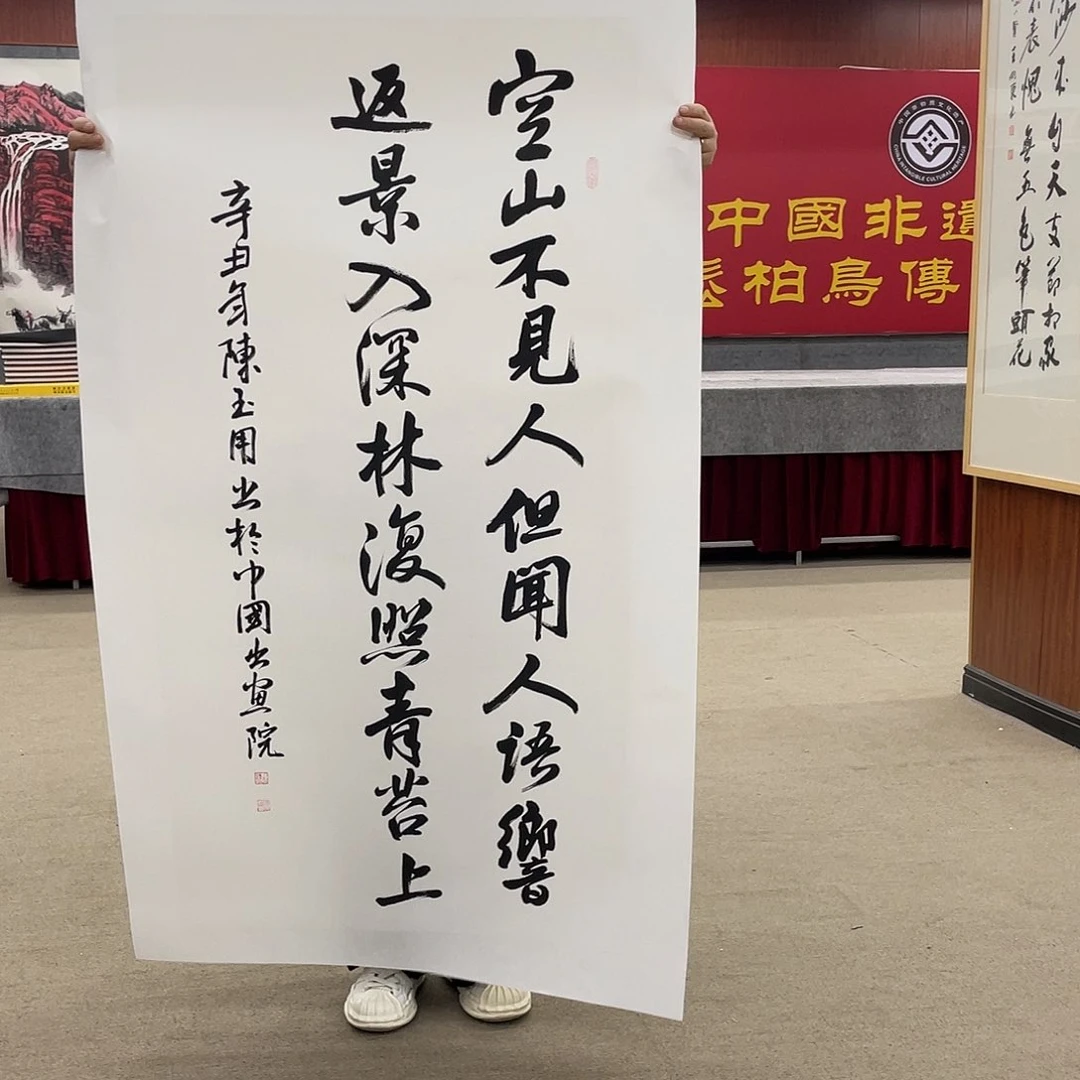 空山不見人但聞人语響
返景入深林復照青苔上
辛丑年陳玉用书於中國书畫院
中國非遺
松柏鳥傳
CHINA INTANGIBLE CULTURAL HERITAGE
天支節
無五色筆頭花